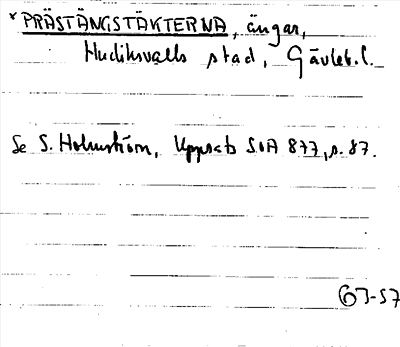 * PRÄSTÄNGSTÄKTERNA, ängar,
Hudiksvalls stad, Gävleb. l.
Se S. Holmström, Uppsats SOA 877, s. 87.